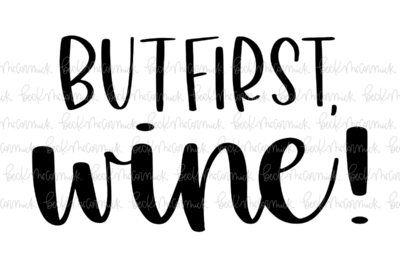 BUT FIRST,
wine!